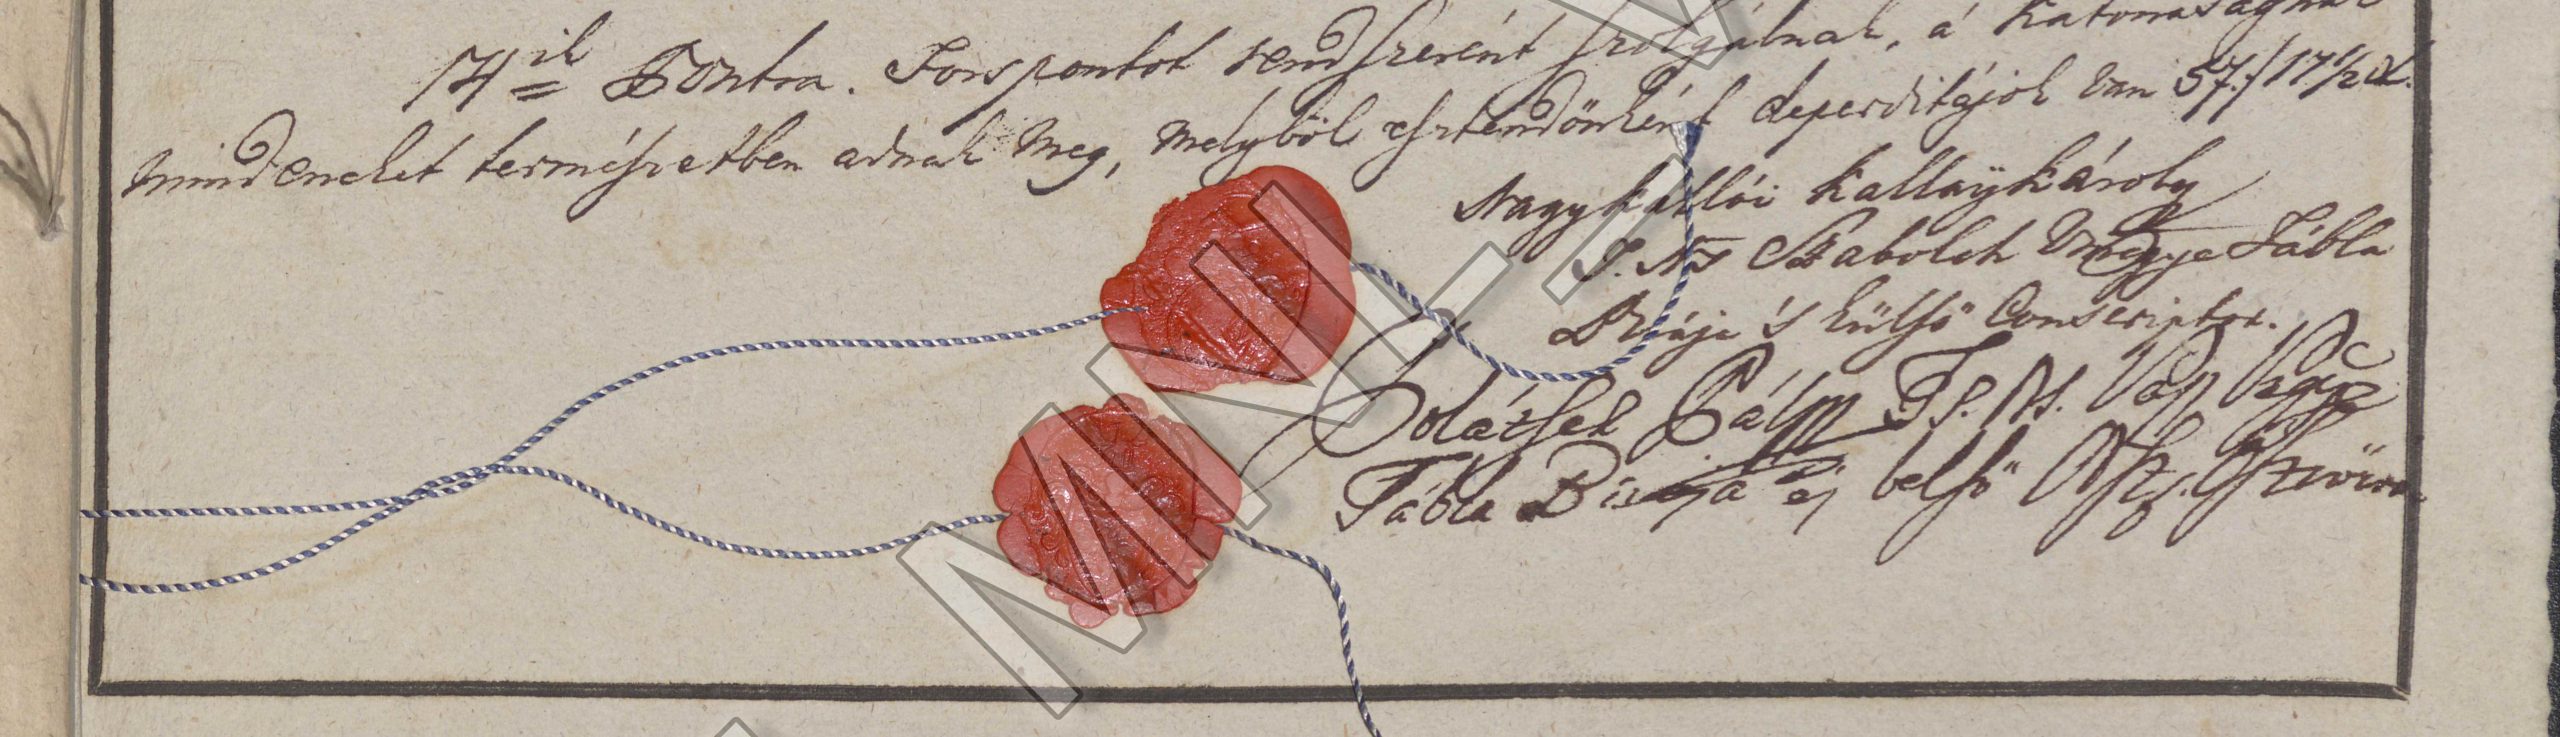 14ik Pontra. Forspontot rendszerént szolgálnak, á Katonaságnak
mindeneket természetben adnak meg, melyböl esztendönként deperditájok van 57.f 17½ X.
Nagykállói Kállaÿ Károly
T. Ns Szabolch Vmegye Tábla
Birája 's külsö Conscriptor.
Pál T. Ns. Vas Vgye
Tábla Birája és belsö
MNL